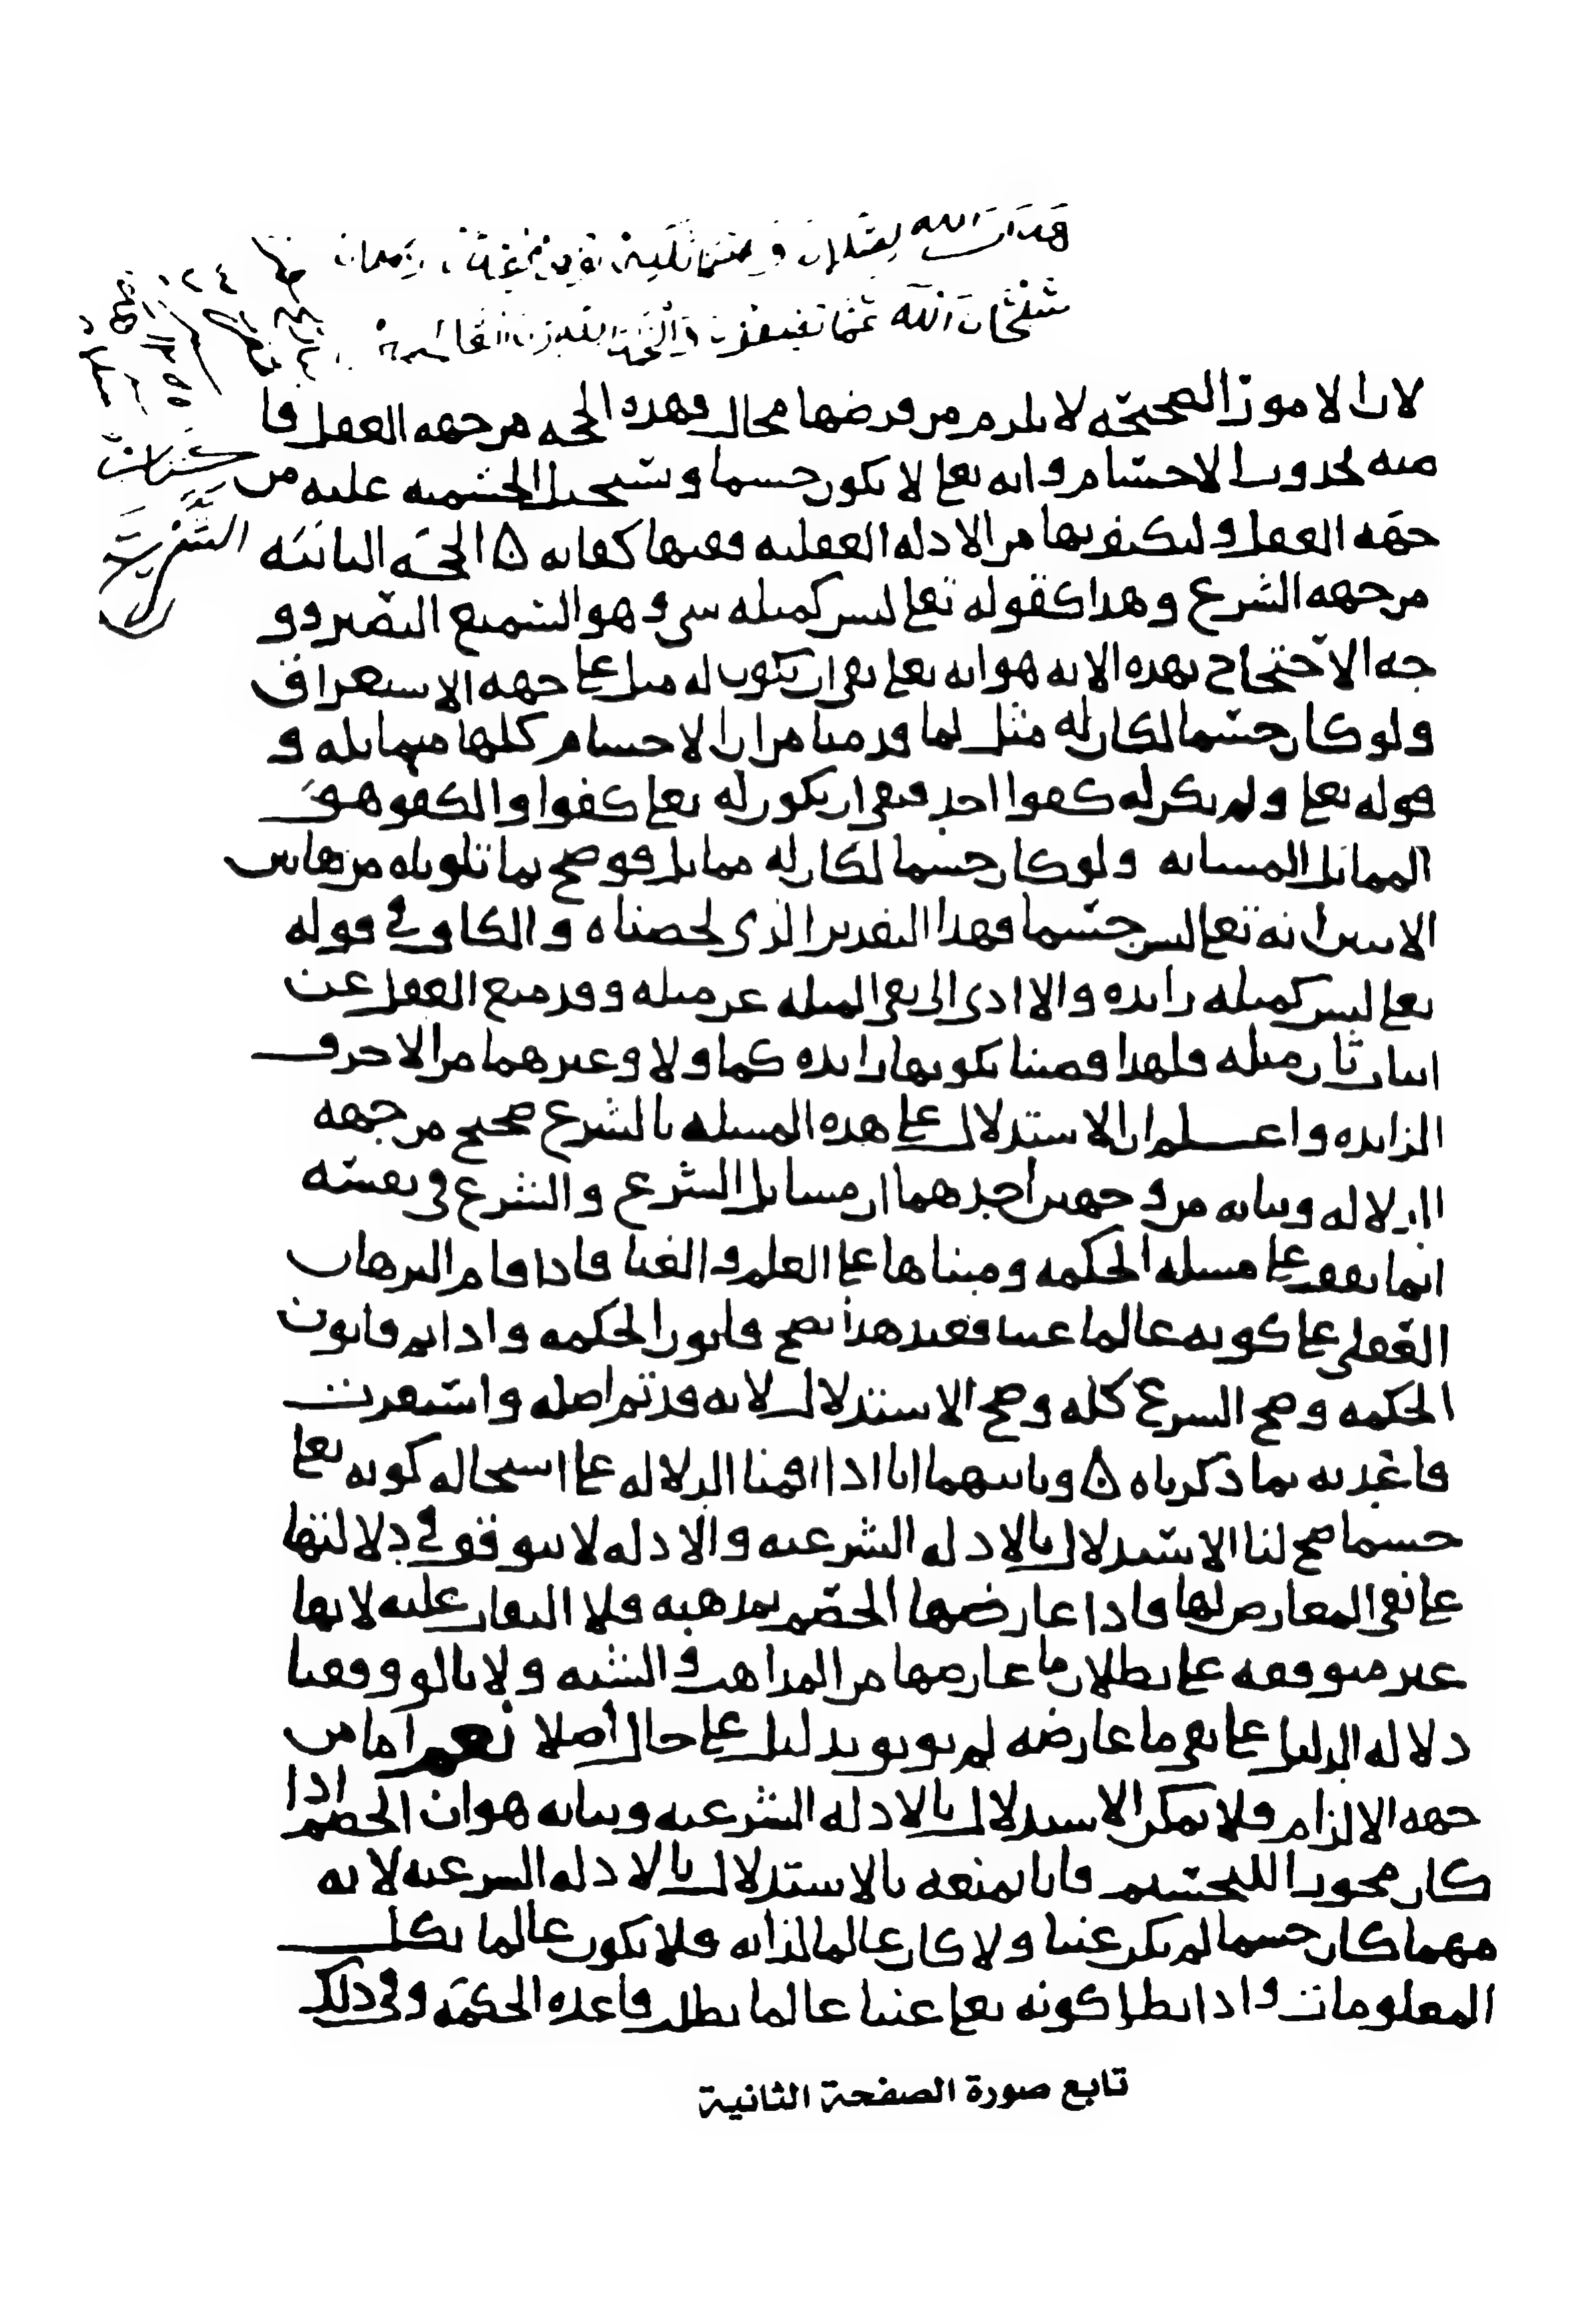 لان الامور الصحيحه لا يلزم من فرضها محال وهذه الحجه من جهه العقل
منه لحدوث الاجسام وانه تعالى لا يكون جسما وتستحيل الجسميه عليه من
جهه العقل وليكتف بها من الادله العقليه ففيها كفايه ۞ الحجه الثانيه
من جهه الشرع وهذا كقوله تعالى ليس كمثله شى وهو السميع البصير وو
جه الاحتجاج بهذه الايه هو انه تعالى نفى ان يكون له مثل على جهه الاستغراق
ولو كان جسما لكان له مثل لما قدمنا من ان الاجسام كلها متماثله و
قوله تعالى ولم يكن له كفوا احد فنفى ان يكون له تعالى كفوا والكفو هو
المماثل المشابه ولو كان جسما لكان له مماثل فوضح بما تلوناه من هاتين
الايتين انه تعالى ليس جسما فهذا التقدير الذى لخصناه والكاف فى قوله
تعالى ليس كمثله زايده والا ادى الى نفى المثله عن مثله وقد منع العقل عن
اثبات ثان مثله فلهذا قضينا بكونها زايده كما ولا وغيرهما من الاحرف
الزايده واعلم ان الاستدلال على هذه المسله بالشرع صحيح من جهه
الدلاله وبيانه من وجهين احدهما ان مسايل الشرع والشرع فى نفسه
انما يقف على مسله الحكمه ومبناها على العلم والغنا فاذا قام البرهان
العقلى على كونه عالما غنيا فعند هذا يصح قانون الحكمه واذا تم قانون
الحكمه وصح الشرع كله وصح الاستدلال لانه قد تم اصله واستقرت
قاعدته بما ذكرناه ۞ وثانيهما انا اذا اقمنا الدلاله على استحاله كونه تعالى
جسما صح لنا الاستدلال بالادله الشرعيه والادله لا تتوقف فى دلالتها
على نفى المعارض لها فاذا عارضها الخصم بمذهبه فلا التفات عليه لانها
غير متوقفه على بطلان ما عارضها من المذاهب والشبه ولانا لو وقفنا
دلاله الدليل على نفى ما عارضه لم يوثق بدليل على حال اصلا نعم اما من
جهه الالزام فلا يمكن الاستدلال بالادله الشرعيه وبيانه هو ان الخصم اذا
كان مجوزا للتجسيم فانا نمنعه بالاستدلال بالادله الشرعيه لانه
مهما كان جسما لم يكن غنيا ولا كان عالما لذاته فلا يكون عالما بكل
المعلومات واذا بطل كونه تعالى غنيا عالما بطلت قاعده الحكمه وفى ذلك
تابع صورة الصفحة الثانية